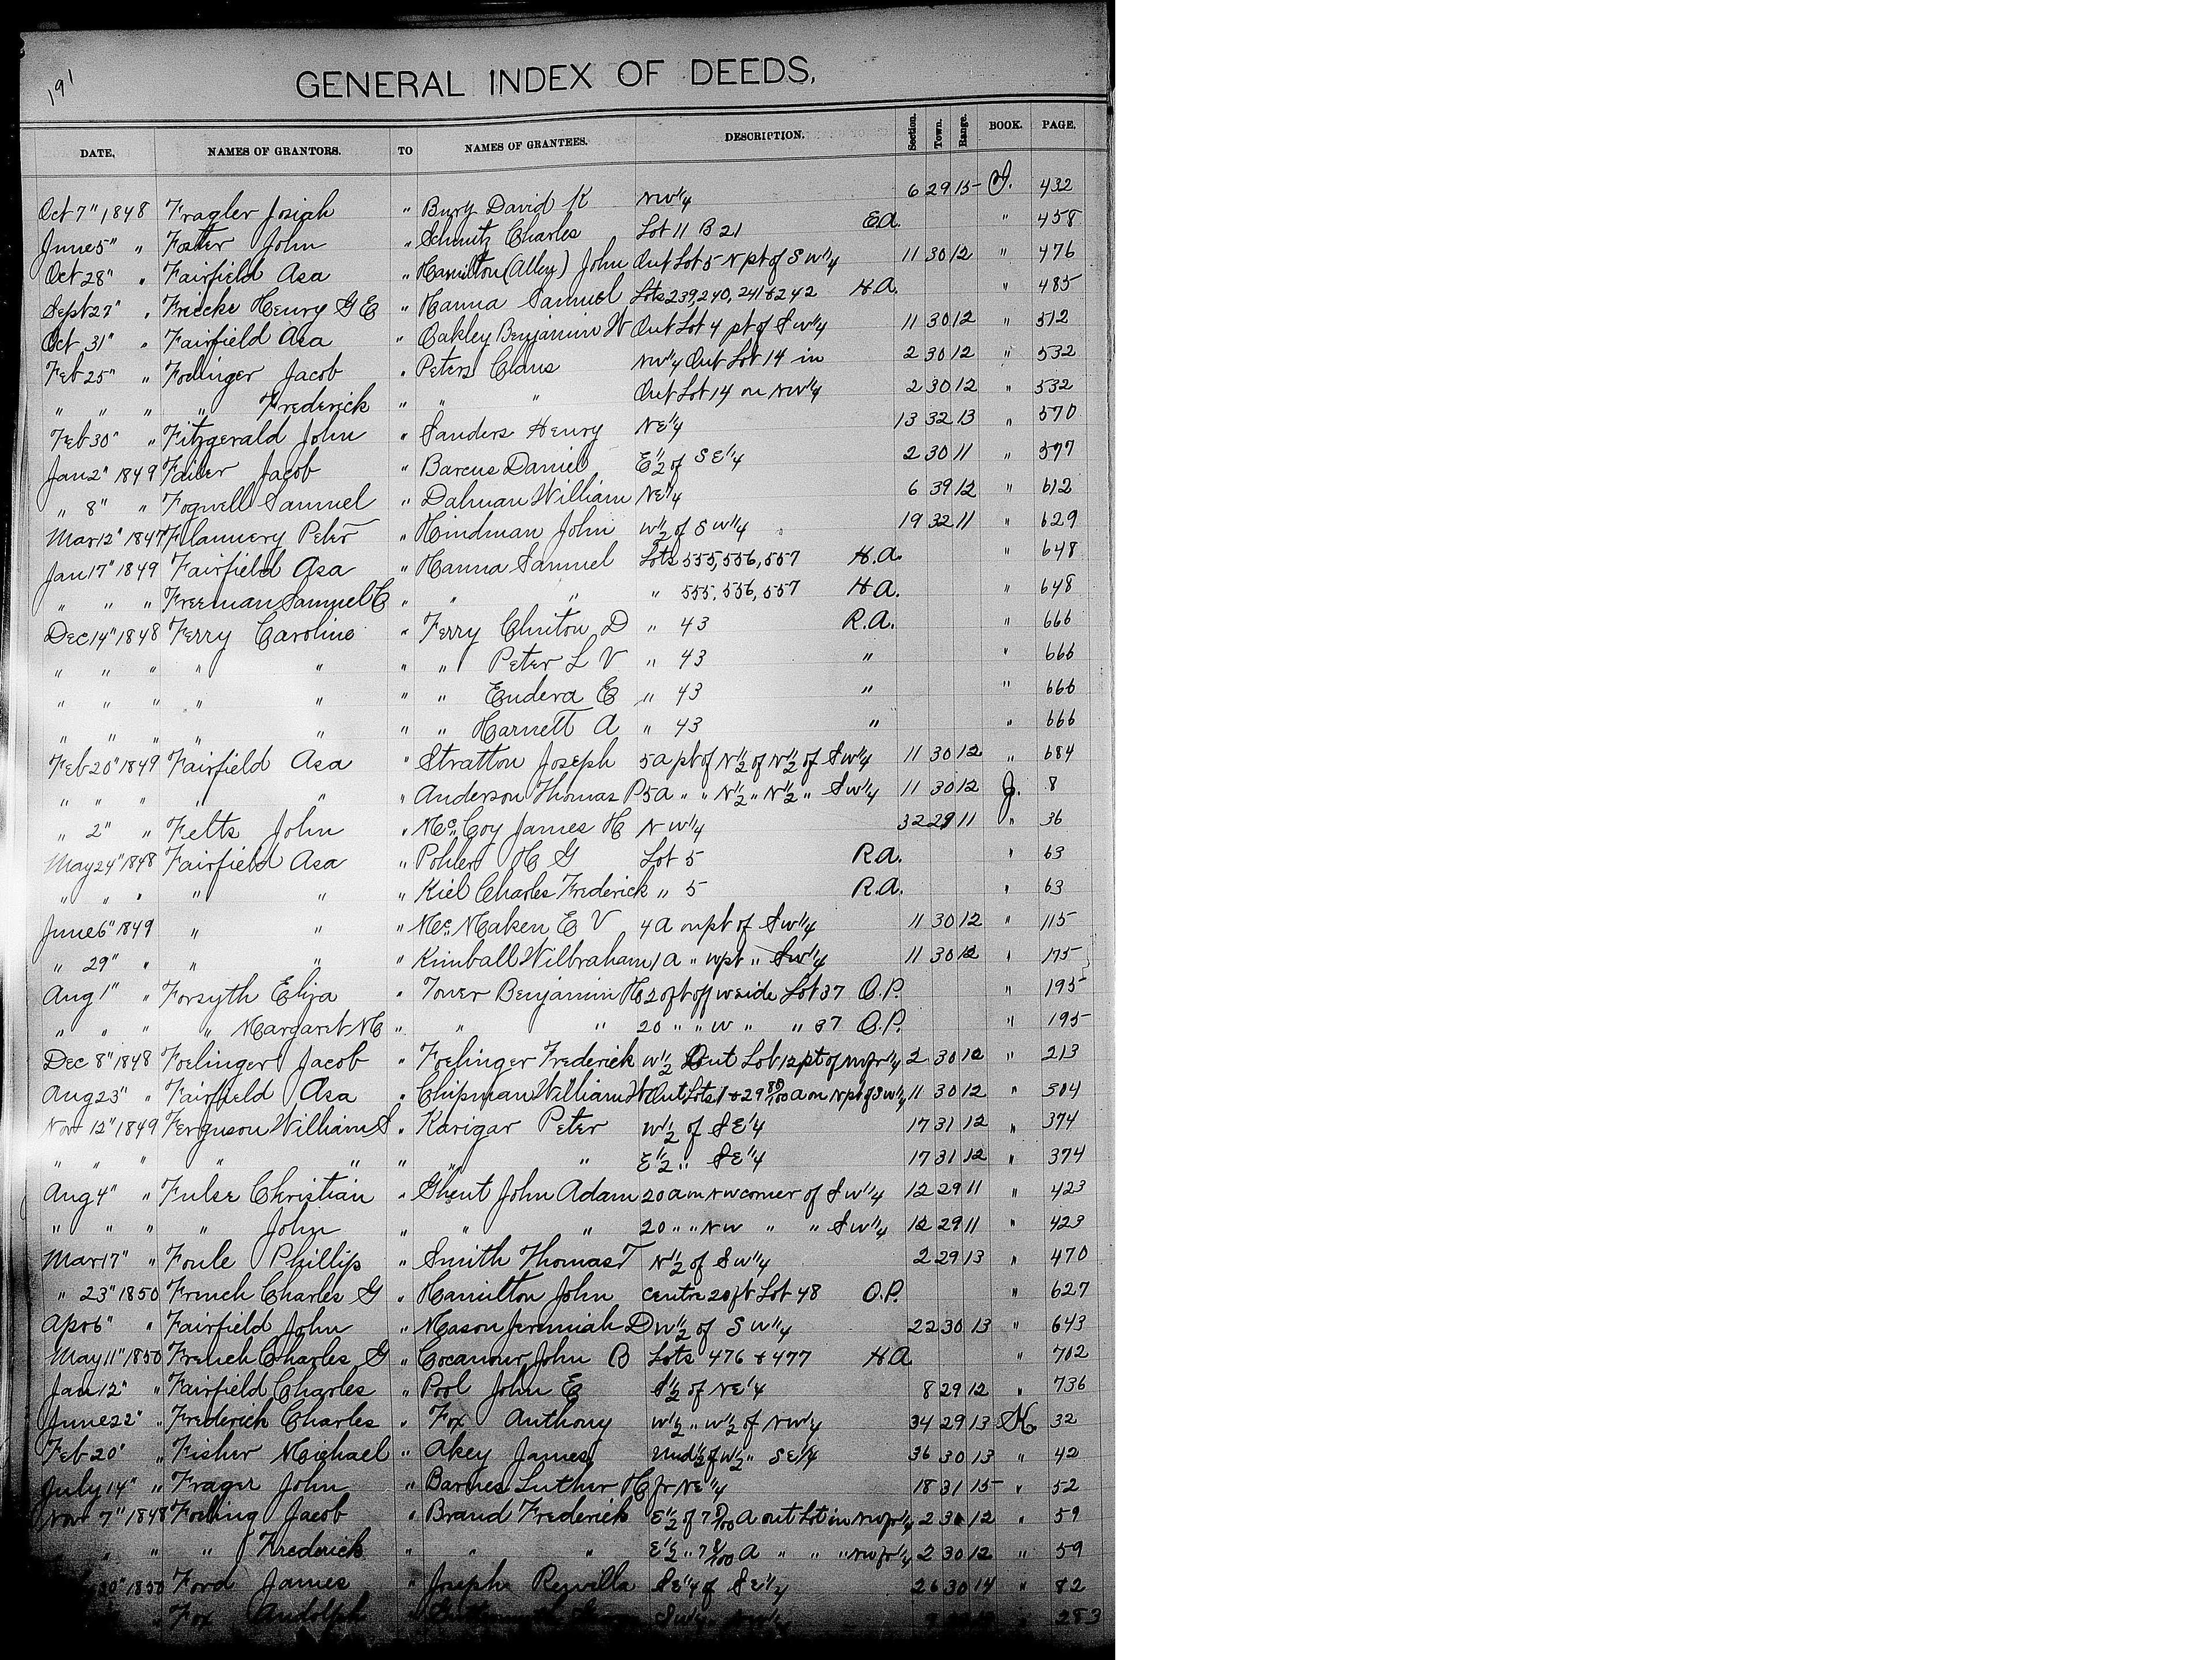 191
GENERAL INDEX OF DEEDS.
DATE. NAMES OF GRANTORS. TO NAMES OF GRANTEES. DESCRIPTION. Section. Town. Range. BOOK. PAGE.
Oct 7" 1848 Fragler Josiah " Bury David K NW 1/4 6 29 15 I. 432
June 5" " Foster John " Schmitz Charles Lot 11 B 21 Ea. " 458
Oct 28" " Fairfield Asa " Hamilton (Alley) John Out Lot 5 N pt of SW 1/4 11 30 12 " 476
Sept 27" " Friecke Henry G E " Hanna Samuel Lots 239, 240, 241 & 242 H.A. " 485
Oct 31" " Fairfield Asa " Oakley Benjamin W Out Lot 4 pt of SW 1/4 11 30 12 " 512
Feb 25" " Foelinger Jacob " Peters Claus NW 1/4 Out Lot 14 in 2 30 12 " 532
" " " " Frederick " " " Out Lot 14 on NW 1/4 2 30 12 " 532
Feb 30" " Fitzgerald John " Sanders Henry NE 1/4 13 32 13 " 570
Jan 2" 1849 Failer Jacob " Barcus Daniel E 1/2 of SE 1/4 2 30 11 " 577
" 8" " Fogwell Samuel " Dalman William NE 1/4 6 39 12 " 612
Mar 12" 1847 Flannery Peter " Hindman John W 1/2 of SW 1/4 19 32 11 " 629
Jan 17" 1849 Fairfield Asa " Hanna Samuel Lots 555, 556, 557 H.A. " 648
" " " Freeman Samuel C " " " " 555, 556, 557 H.A. " 648
Dec 14" 1848 Ferry Caroline " Ferry Clinton D " 43 R.A. " 666
" " " " " " " Peter L V " 43 " " 666
" " " " " " " Eudera E " 43 " " 666
" " " " " " " Harnett A " 43 " " 666
Feb 20" 1849 Fairfield Asa " Stratton Joseph 5 a pt of N 1/2 of N 1/2 of SW 1/4 11 30 12 " 684
" " " " " " Anderson Thomas P 5 a " " N 1/2 " N 1/2 " SW 1/4 11 30 12 J. 8
" 2" " Felts John " McCoy James H NW 1/4 32 29 11 " 36
May 24" 1848 Fairfield Asa " Pohler H G Lot 5 R.A. " 63
" " " " " " Kiel Charles Frederick " 5 R.A. " 63
June 6" 1849 " " " McMaken E V 4 A on pt of SW 1/4 11 30 12 " 115
" 29" " " " " Kimball Wilbraham 1 a " W pt " SW 1/4 11 30 12 " 175
Aug 1" " Forsyth Eliza " Tower Benjamin H 20 ft off W side Lot 37 O.P. " 195
" " " " Margaret M " " " 20 " " W " " 37 O.P. " 195
Dec 8" 1848 Foelinger Jacob " Foelinger Frederick W 1/2 Out Lot 12 pt of NW fr 1/4 2 30 12 " 213
Aug 23" " Fairfield Asa " Chipman William W Out Lots 1 & 2 9 80/100 a on N pt of SW 1/4 11 30 12 " 304
Nov 12" 1849 Ferguson William S " Karigar Peter W 1/2 of SE 1/4 17 31 12 " 374
" " " " " " " " E 1/2 " SE 1/4 17 31 12 " 374
Aug 4" " Fulsr Christian " Ghent John Adam 20 a on NW corner of SW 1/4 12 29 11 " 423
" " " " John " " " 20 " " NW " " SW 1/4 12 29 11 " 423
Mar 17" " Foule Phillip " Smith Thomas T N 1/2 of SW 1/4 2 29 13 " 470
" 23" 1850 French Charles G " Hamilton John Centre 20 ft Lot 48 O.P. " 627
Apr 6" " Fairfield John " Mason Jeremiah D W 1/2 of SW 1/4 22 30 13 " 643
May 11" 1850 French Charles G " Cocanour John B Lots 476 & 477 H.A. " 702
Jan 12" " Fairfield Charles " Pool John E S 1/2 of NE 1/4 8 29 12 " 736
June 22" " Frederick Charles " Fox Anthony W 1/2 " W 1/2 of NW 1/4 34 29 13 K. 32
Feb 20" " Fisher Michael " Akey James Und 1/2 of W 1/2 " SE 1/4 36 30 13 " 42
July 14" " Frager John " Barnes Luther H fr NE 1/4 18 31 15 " 52
Nov 7" 1848 Foeling Jacob " Brand Frederick E 1/2 of 7 8/100 A out Lot in NW fr 1/4 2 30 12 " 59
" " " Frederick " " " E 1/2 " 7 8/100 A " " " NW fr 1/4 2 30 12 " 59
30" 1850 Ford James " Joseph Rewilla SE 1/4 of SE 1/4 26 30 14 " 82
" Fox Andolph " SW 1/4 283